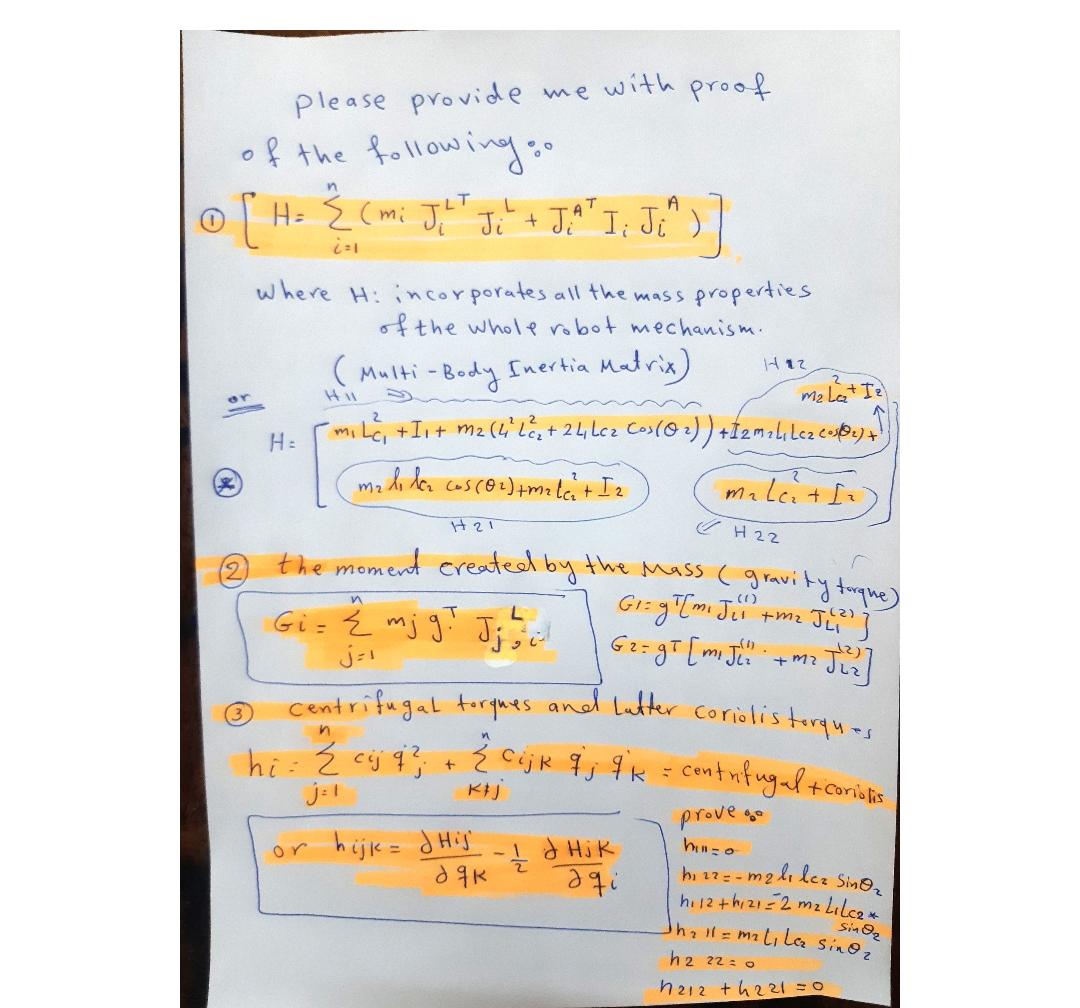 please provide me with proof
of the following:
① [ H= Σ_{i=1}^{n} (mi J_i^{LT} J_i^{L} + J_i^{AT} I_i J_i^{A}) ]
where H: incorporates all the mass properties
of the whole robot mechanism.
(Multi-Body Inertia Matrix)
H12
or
H11
m2 Lc2² + I2
H= [ m1 Lc1² + I1 + m2 (L1² Lc2² + 2 L1 Lc2 cos(θ2)) + I2 m2 L1 Lc2 cos(θ2) +
* m2 l1 lc2 cos(θ2) + m2 Lc2² + I2   m2 Lc2² + I2 ]
H21
H22
② the moment created by the Mass (gravity torque)
Gi = Σ_{j=1}^{n} mj g^T J_{j,i}^{L}
G1 = g^T [m1 J_{L1}^{(1)} + m2 J_{L1}^{(2)}]
G2 = g^T [m1 J_{L2}^{(1)} + m2 J_{L2}^{(2)}]
③ centrifugal torques and latter coriolis torques
hi = Σ_{j=1}^{n} cij q̇j² + Σ_{k≠j}^{n} cijk q̇j q̇k = centrifugal + coriolis
or hijk = ∂Hij/∂qk - 1/2 ∂Hjk/∂qi
prove:
h111=0
h122 = - m2 l1 lc2 Sinθ2
h112 + h121 = -2 m2 L1 Lc2 *
sinθ2
h211 = m2 L1 Lc2 sinθ2
h222 = 0
h212 + h221 = 0